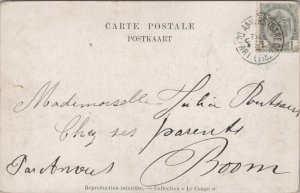 CARTE POSTALE
POSTKAART
Mademoiselle Julia
Chez ses parents
Par Anvers Boom
Reproduction interdite. — Collection « Le Congo »